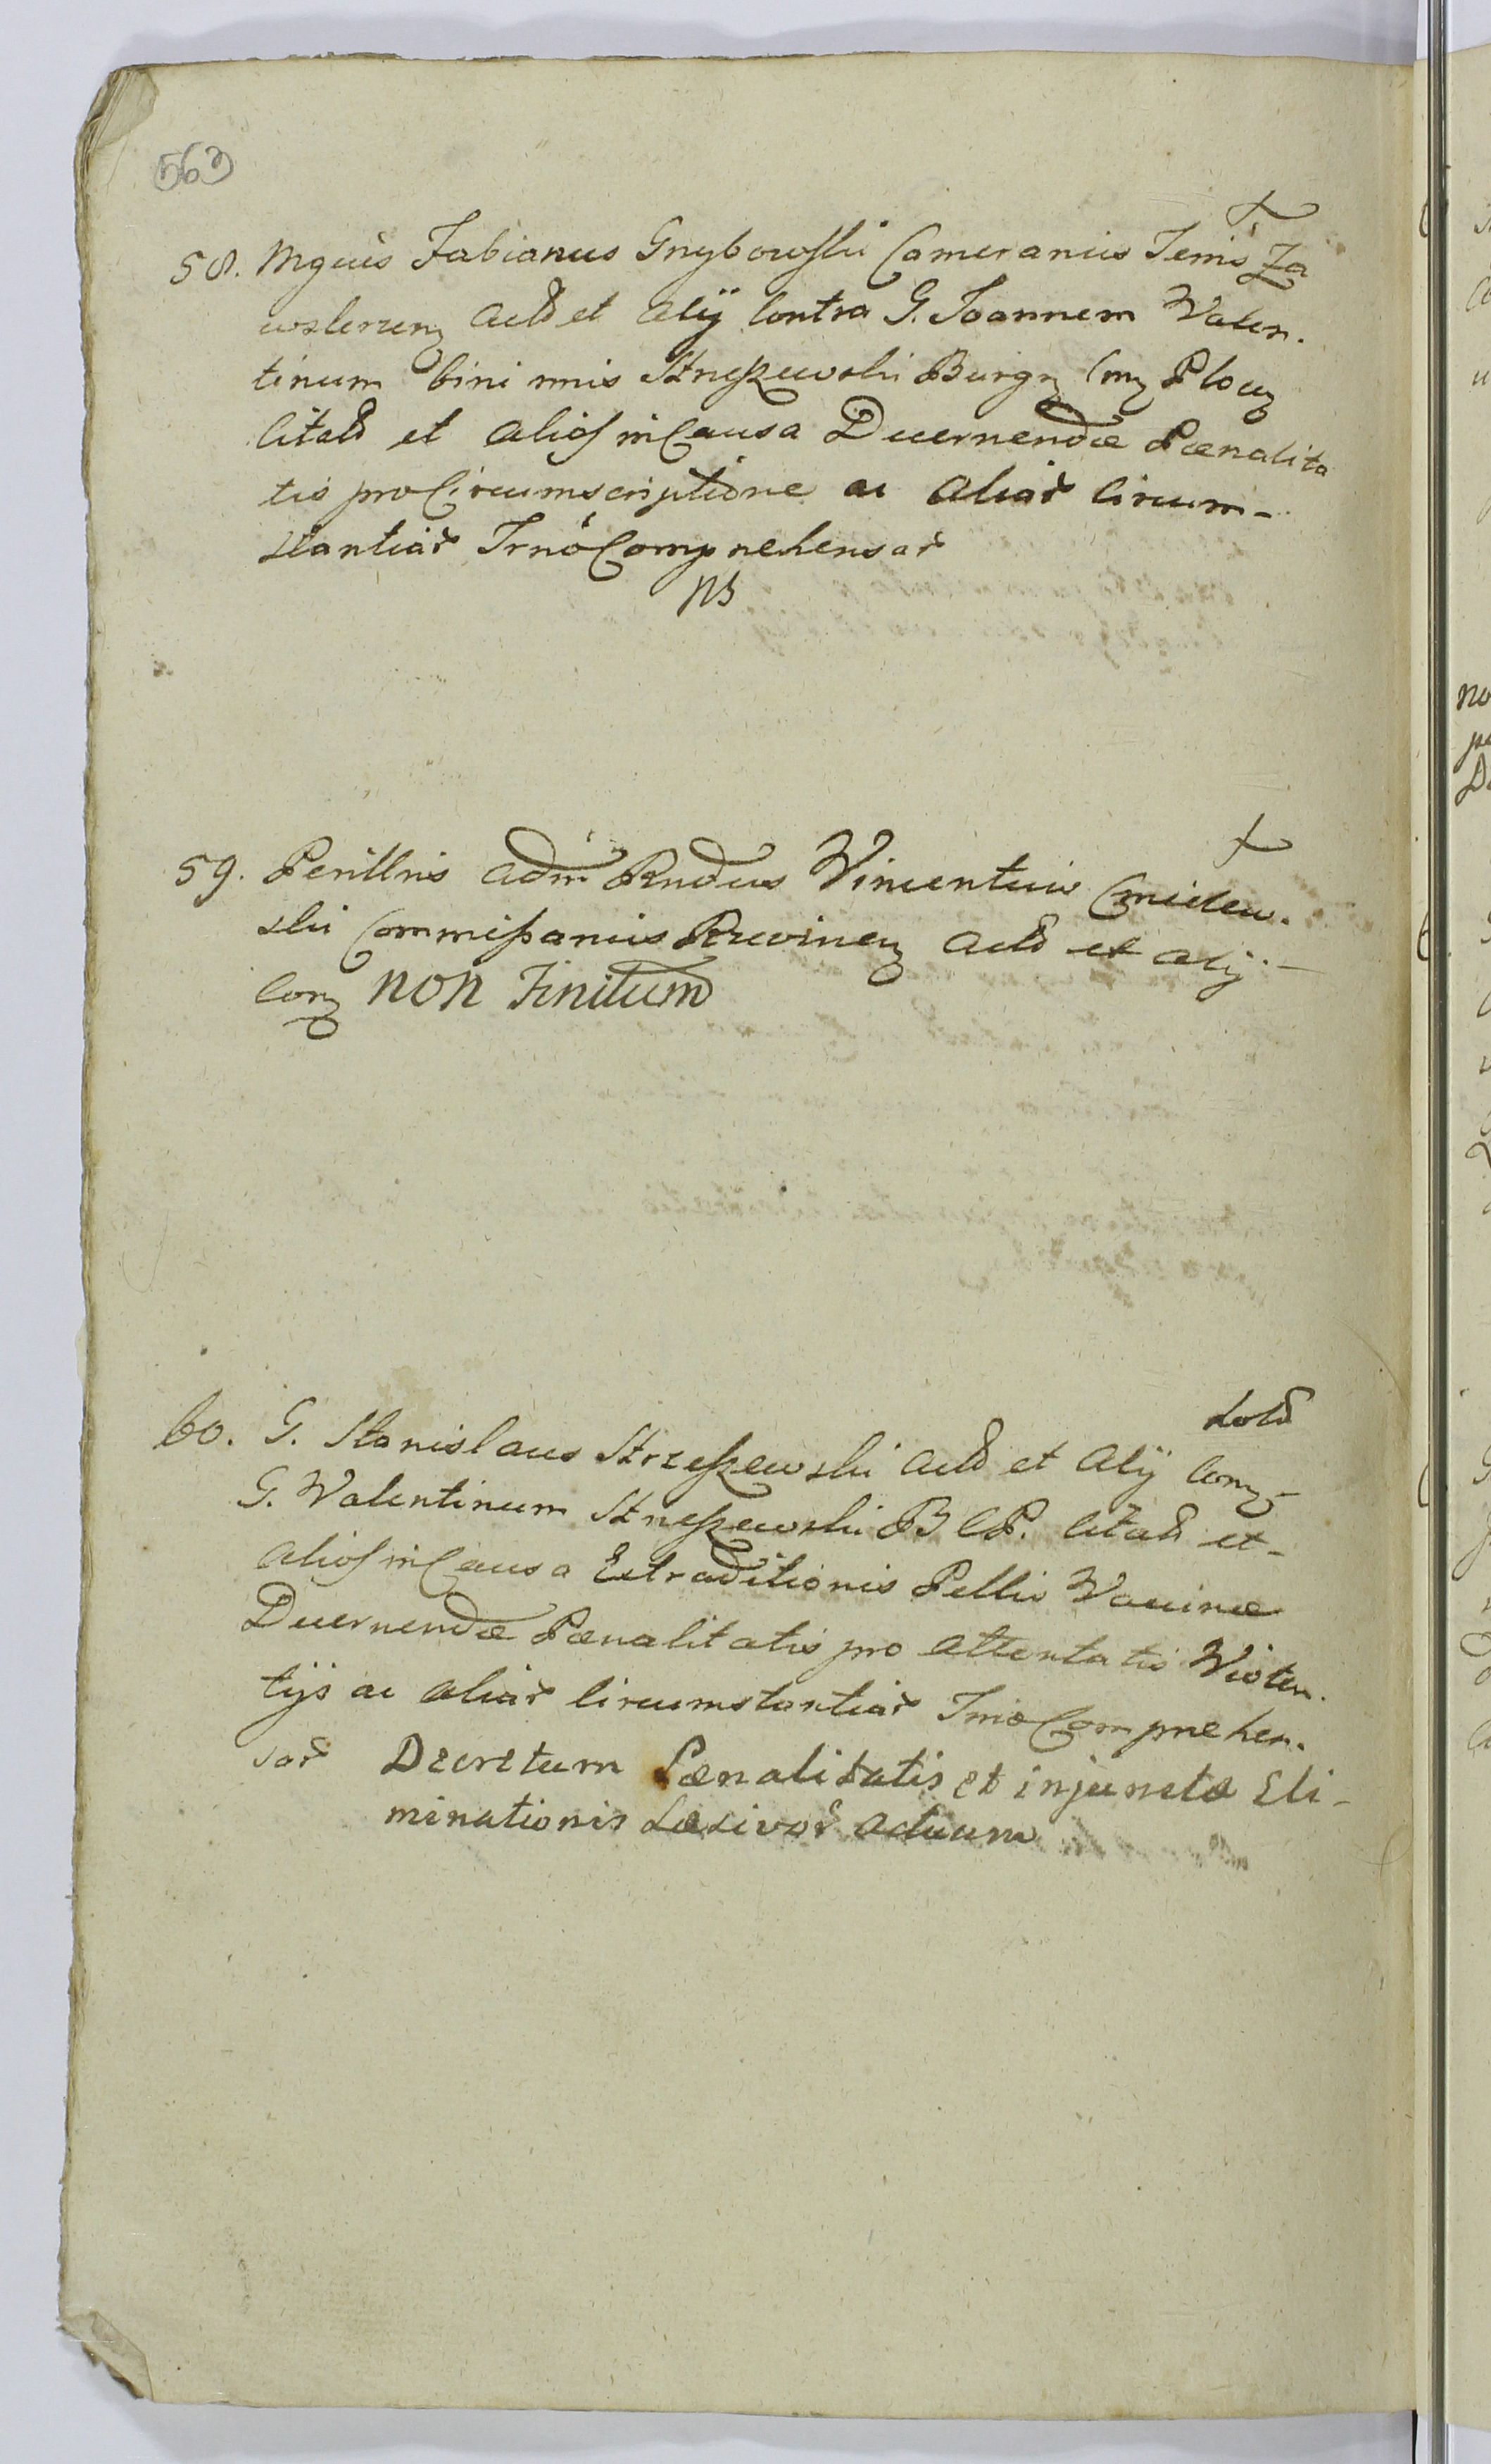 563
+
58. Mgcus Fabianus Grzybowski Camerarius Terris Za
wskrzen Actor et Alij Contra G. Joannem Valen-
tinum bini nnis Strzeszewski Burgr Crm Plocen
Citatos et Alios in Causa Decernendæ Pœnalita
tis pro Circumscriptione ac Aliar Circum-
stantiar Trno Comprehensar
NB
+
59. Perillris Adm Rndus Vincentius
ski Commissarius Ruvinen Actor et Alij-
Con Non Finitum
Sold
60. G. Stanislaus Strzeszewski Actor et Alij Con-
G. Valentinum Strzeszewski B C P. Citatos et-
Alios in Causa Extraditionis Pellis Vaccinæ
Decernendæ Pœnalitatis pro Attentatis Violen-
tijs ac Aliar Circumstantiar Trno Comprehen-
sar Decretum Pœnalitatis et injunctæ Eli-
minationis Læsivor Actuum